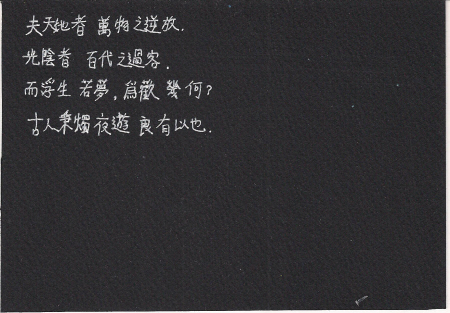 夫天地者 萬物之逆旅.
光陰者 百代之過客.
而浮生若夢,為歡幾何?
古人秉燭夜遊 良有以也.